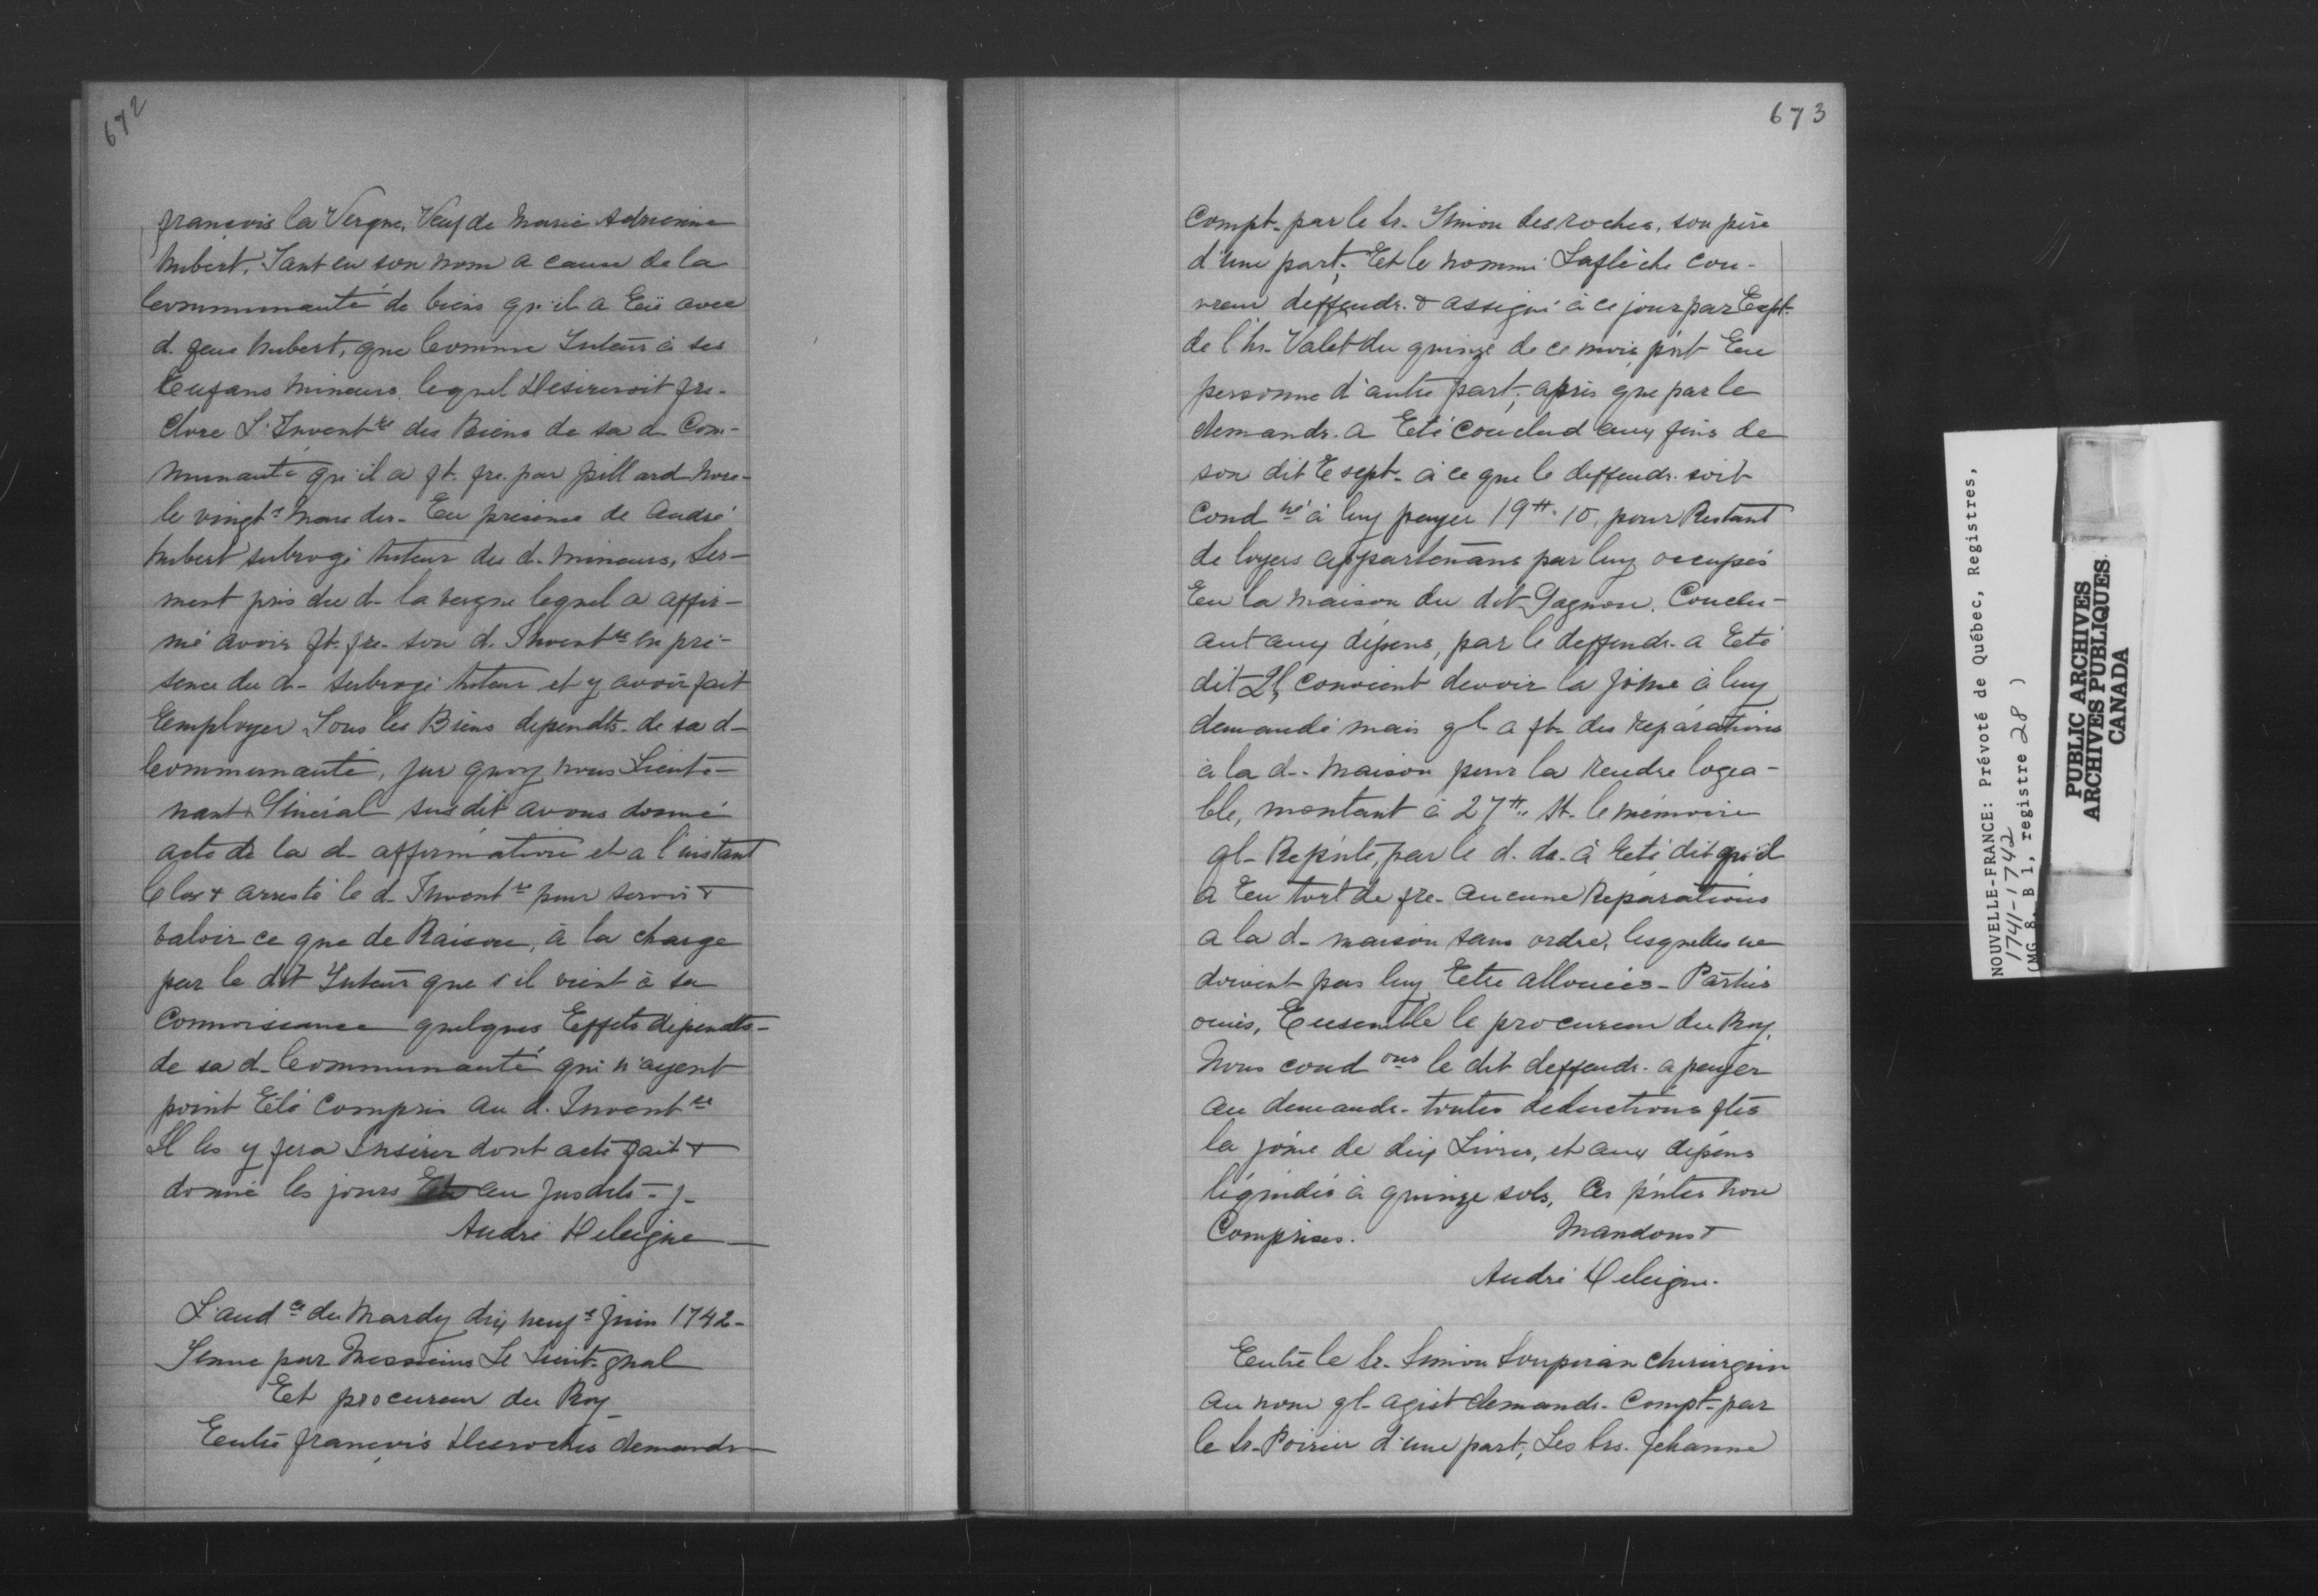 672
françois la Vergne, Veuf de Marie Adrienne
hubert, Tant en son nom a cause de la
Communauté de biens qu'il a Eü avec
d. feue hubert, que Comme Tuteur à ses
Enfans mineurs, lequel Desireroit fre-
Clore L'Invent re des Biens de sa d. Com-
munauté qu'il a ft. fre. par pillard nore-
le vingt e mars der- En presence de André
hubert subrogé tuteur des d. mineurs, Ser-
ment pris du d- la vergne lequel a affir-
mé avoir ft. fre. son d. Invent re en pré-
sence du d- subrogé tuteur et y avoir fait
Employer Tous les Biens dependts. de sa d-
Communauté, sur quoy nous Lieute-
nant Général susdit avons donné
acte de la d- affirmation et a l'instant
Clos & arresté le d- Invent re pour servir &
valoir ce que de Raison, à la charge
par le dit Tuteur que s'il vient à sa
Connoissance quelques Effets dependts-
de sa d- Communauté qui n'ayent
point Eté compris au d. Invent re
Il les y fera Insérer dont acte fait &
donné les jours au susdits - j-
André Deleigne
L'aud ce du Mardy dix neuf e Juin 1742-
Tenue par Messieurs Le Lieut- gnal
Et procureur du Roy
Entre françois Desroches demandr
673
Compt- par le Sr. Simon desroches, son père
d'une part; Et le nommé Laflèche cou-
vreur deffendr. & assigné à ce jour par Expt-
de l'hr. Valet du quinze de ce mois pnt En
personne d'autre part; après que par le
demandr. a Eté Conclud aux fins de
son dit Expt- à ce que le deffendr. soit
Cond né à luy payer 19 tt. 10, pour Restant
de loyers appartenans par luy occupés
En la maison du dit Gagnon, Conclu-
ant aux dépens, par le deffendr- a Eté
dit Ql convient devoir la some à luy
demandé mais ql- a ft- des Réparations
à la d-- maison pour la rendre logea-
ble, montant à 27 tt.. st. le mémoire
ql- Repnte, par le d. dr. à Eté dit qu'il
a Eu tort de fre- aucune Réparations
a la d- maison sans ordre, lesquelles ne
doivent pas luy Etre allouées - Parties
ouies, Ensemble le procureur du Roy,
Nous cond ons le dit deffendr- a payer
au demandr- toutes deductions ftes
la sóme de dix Livres, et aux dépens
liquidés à quinze sols, Ces pntes non
Comprises. Mandons &
André Deleigne.
Entre le Sr. Simon Soupiran Chirurgien
au nom ql- agist demandr- Compt- par
le Sr. Poirier d'une part; Les Srs. Jehanne
NOUVELLE-FRANCE: Prévoté de Québec, Registres,
1741-1742
(MG 8, B 1, registre 28 )
PUBLIC ARCHIVES
ARCHIVES PUBLIQUES
CANADA